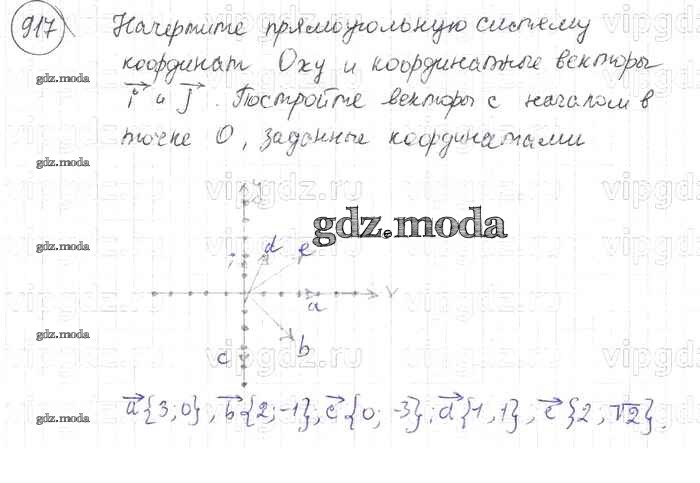 917
Начертите прямоугольную систему
координат Oxy и координатные векторы
i и j. Постройте векторы с началом в
точке O, заданные координатами
gdz.moda
gdz.moda
gdz.moda
gdz.moda
gdz.moda
gdz.moda
vipgdz.ru
vipgdz.ru
vipgdz.ru
vipgdz.ru
y
d e
i
x
a
b
c
a{3;0}, b{2;-1}; c{0; -3}; d{1,1}, e{2; √2}.